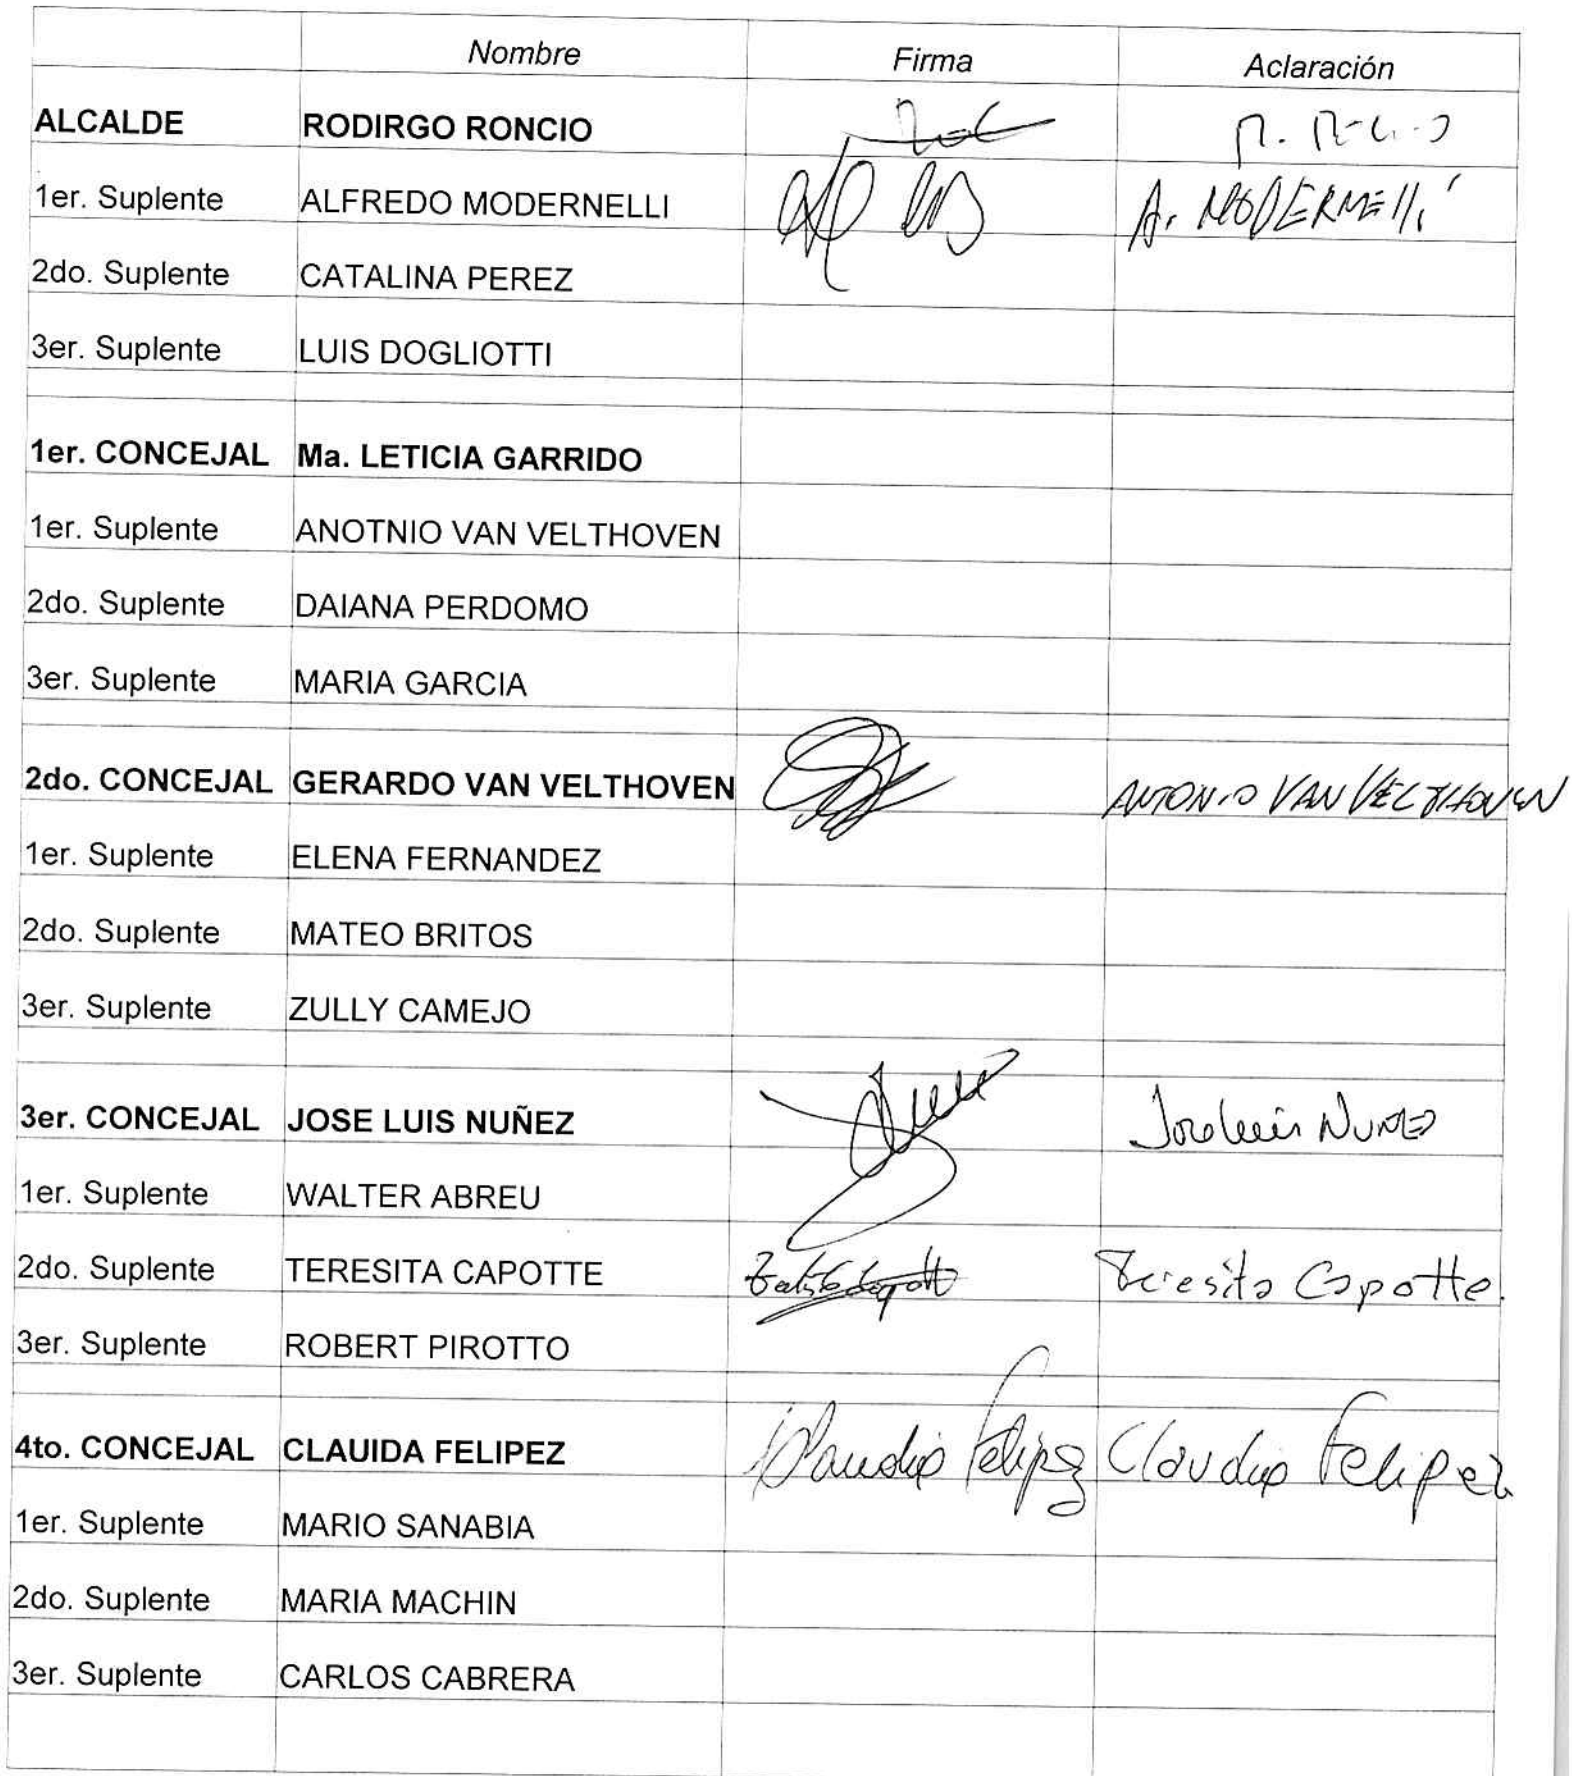 Nombre Firma Aclaración
ALCALDE RODIRGO RONCIO
1er. Suplente ALFREDO MODERNELLI A. MODERNELLI
2do. Suplente CATALINA PEREZ
3er. Suplente LUIS DOGLIOTTI
1er. CONCEJAL Ma. LETICIA GARRIDO
1er. Suplente ANOTNIO VAN VELTHOVEN
2do. Suplente DAIANA PERDOMO
3er. Suplente MARIA GARCIA
2do. CONCEJAL GERARDO VAN VELTHOVEN ANTONIO VAN VELTHOVEN
1er. Suplente ELENA FERNANDEZ
2do. Suplente MATEO BRITOS
3er. Suplente ZULLY CAMEJO
3er. CONCEJAL JOSE LUIS NUÑEZ Jose Luis NUÑEZ
1er. Suplente WALTER ABREU
2do. Suplente TERESITA CAPOTTE Teresita Capotte.
3er. Suplente ROBERT PIROTTO
4to. CONCEJAL CLAUIDA FELIPEZ Claudia Felipez Claudia Felipez
1er. Suplente MARIO SANABIA
2do. Suplente MARIA MACHIN
3er. Suplente CARLOS CABRERA